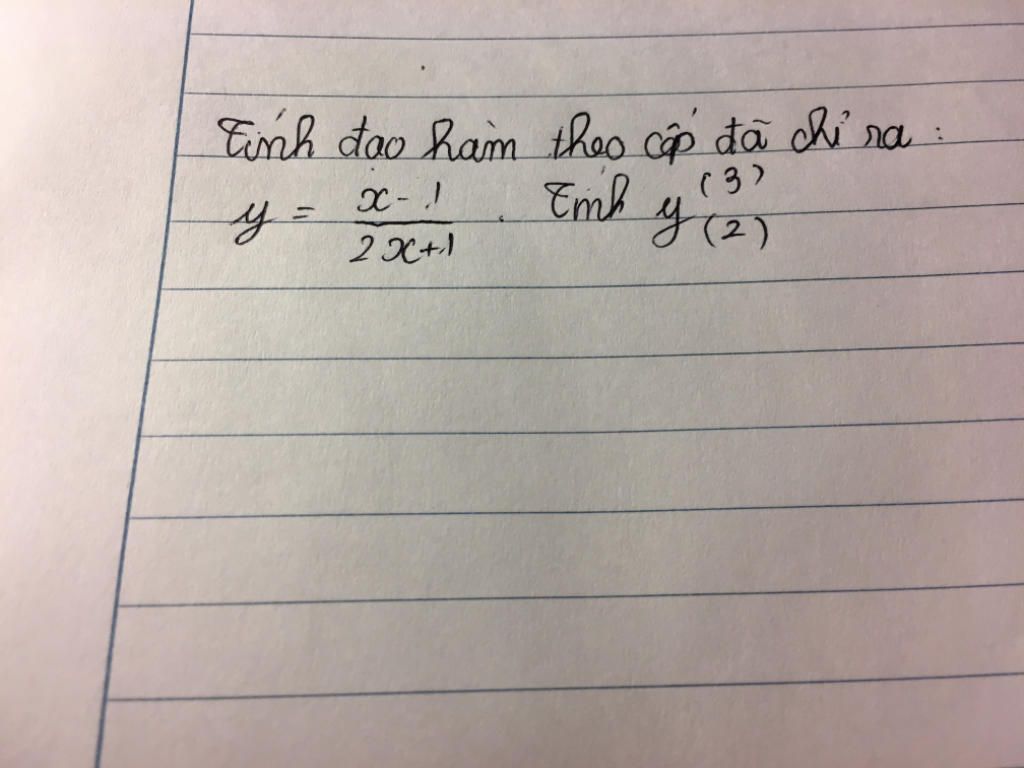 Tính đạo hàm theo cấp đã chỉ ra :
y = \frac{x-1}{2x+1} . Tính y^{(3)}(2)